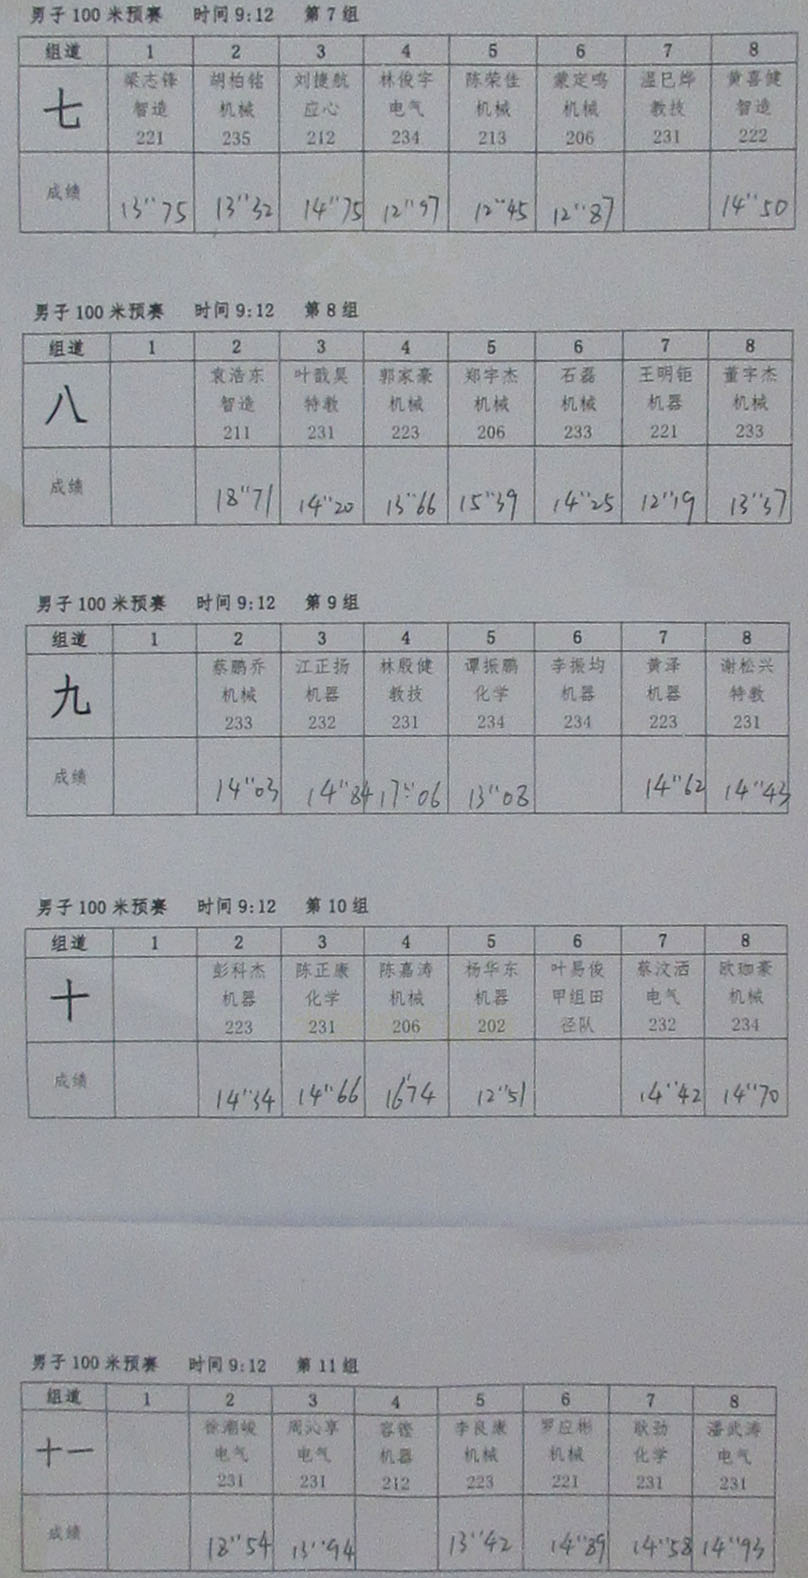 男子100米预赛 时间9:12 第7组
组道 1 2 3 4 5 6 7 8
七 梁志锋 胡柏铭 刘捷航 林俊宇 陈荣佳 蒙定鸣 温巳烨 黄喜健
智造 机械 应心 电气 机械 机械 教技 智造
221 235 212 234 213 206 231 222
成绩 13"75 13"32 14"75 12"97 12"45 12"87 14"50
男子100米预赛 时间9:12 第8组
组道 1 2 3 4 5 6 7 8
八 袁浩东 叶戬昊 郭家豪 郑宇杰 石磊 王明钜 董宇杰
智造 特教 机械 机械 机械 机器 机械
211 231 223 206 233 221 233
成绩 18"71 14"20 13"66 15"39 14"25 12"19 13"37
男子100米预赛 时间9:12 第9组
组道 1 2 3 4 5 6 7 8
九 蔡鹏乔 江正扬 林殷健 谭振鹏 李振均 黄泽 谢松兴
机械 机器 教技 化学 机器 机器 特教
233 232 231 234 234 223 231
成绩 14"03 14"84 17"06 13"08 14"62 14"43
男子100米预赛 时间9:12 第10组
组道 1 2 3 4 5 6 7 8
十 彭科杰 陈正康 陈嘉涛 杨华东 叶易俊 蔡汶洒 欧珈豪
机器 化学 机械 机器 甲组田 电气 机械
223 231 206 202 径队 232 234
成绩 14"34 14"66 16"74 12"51 14"42 14"70
男子100米预赛 时间9:12 第11组
组道 1 2 3 4 5 6 7 8
十一 徐潮峻 周沁享 容铿 李良康 罗应彬 耿劲 潘武涛
电气 电气 机器 机械 机械 化学 电气
231 231 212 223 221 231 231
成绩 13"94 13"42 14"89 14"58 14"93